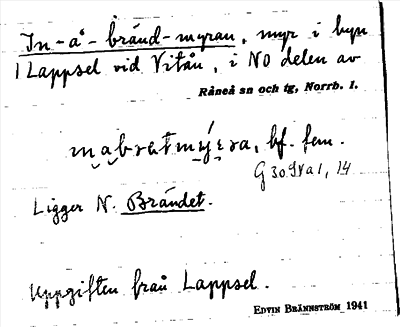 In-å-bränd-myran, myr i byn
Lappsel vid Vitån, i NO delen av
Råneå sn och tg, Norrb. l.
bf. fem.
G 30 9va1, 14
Ligger N. Brändet.
Uppgiften från Lappsel.
EDVIN BRÄNNSTRÖM 1941